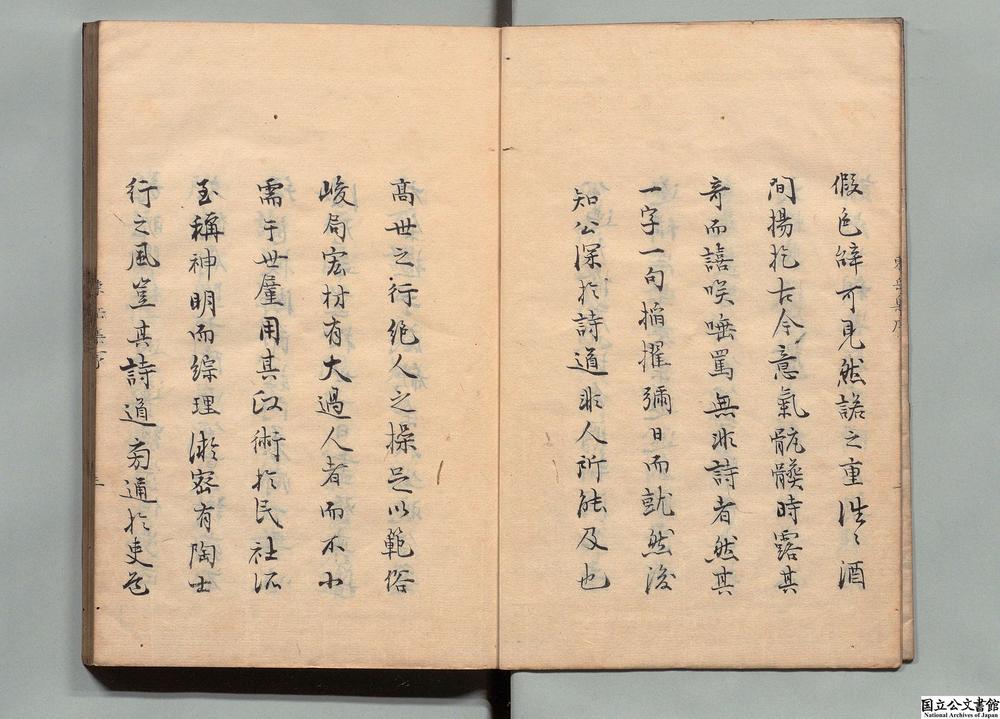 假色辭可見然諾之重徃〻酒
間揚扢古今意氣骯髒時露其
奇而譆唉唾罵無非詩者然其
一字一句搯擢彌日而就然後
知公深於詩道非人所能及也
髙世之行絶人之操足以範俗
峻局宏材有大過人者而不小
需于世屋用其政術於民社
至稱神明而綜理㴱宻有陶士
行之風豈其詩道旁通於吏
国立公文書館
National Archives of Japan